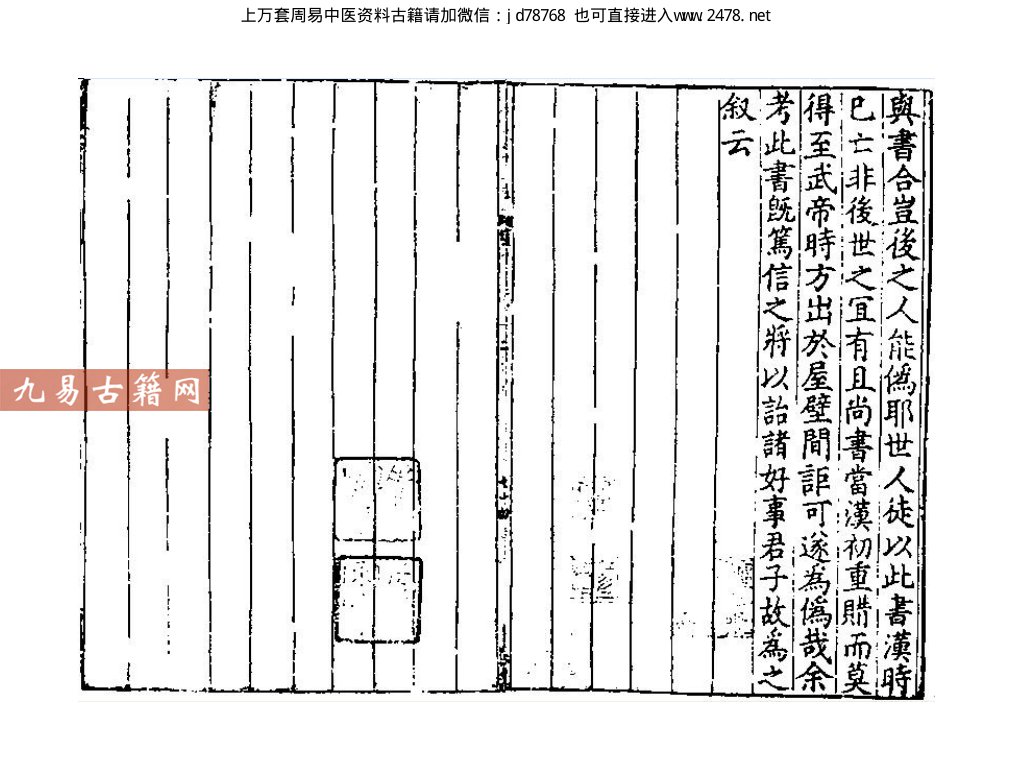 上万套周易中医资料古籍请加微信：jd78768 也可直接进入www.2478.net
與書合豈後之人能僞耶世人徒以此書漢時
已亡非後世之冝有且尚書當漢初重購而莫
得至武帝時方出於屋壁間詎可遂爲僞哉余
考此書旣篤信之將以詒諸好事君子故爲之
叙云
九易古籍网